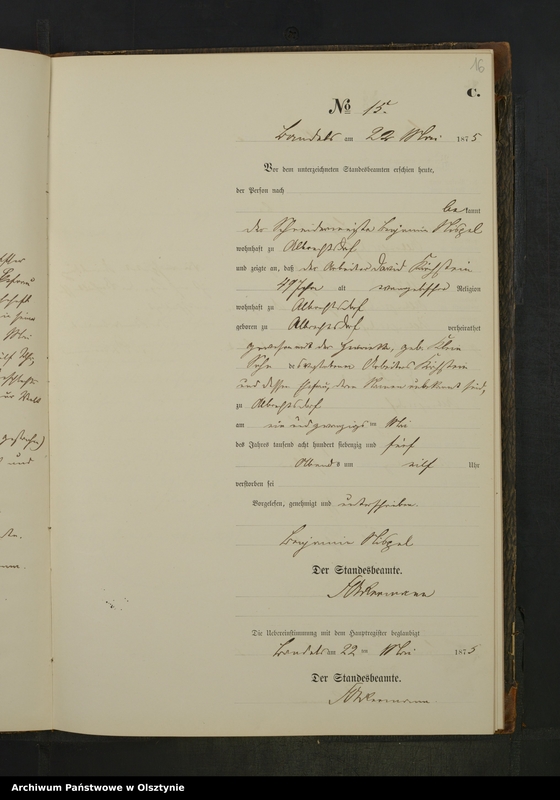 16
C.
No 15.
Bandels am 22 Mai 1875
Vor dem unterzeichneten Standesbeamten erschien heute,
der Person nach
bekannt
der Schneidermeister Benjamin
wohnhaft zu Albrechtsdorf
und zeigte an, daß der Arbeiter David Kirschstein
49 Jahre alt evangelischer Religion
wohnhaft zu Albrechtsdorf
geboren zu Albrechtsdorf verheirathet
gewesen mit der Henriette, geb. Klein
Sohn des verstorbenen Arbeiters Kirschstein
und dessen Ehefrau, deren Namen unbekannt sind,
zu Albrechtsdorf
am ein und zwanzigsten Mai
des Jahres tausend acht hundert siebenzig und fünf
Abends um eilf Uhr
verstorben sei
Vorgelesen, genehmigt und unterschrieben
Benjamin
Der Standesbeamte.
Die Uebereinstimmung mit dem Hauptregister beglaubigt
Bandels am 22ten Mai 1875
Der Standesbeamte.
Archiwum Państwowe w Olsztynie